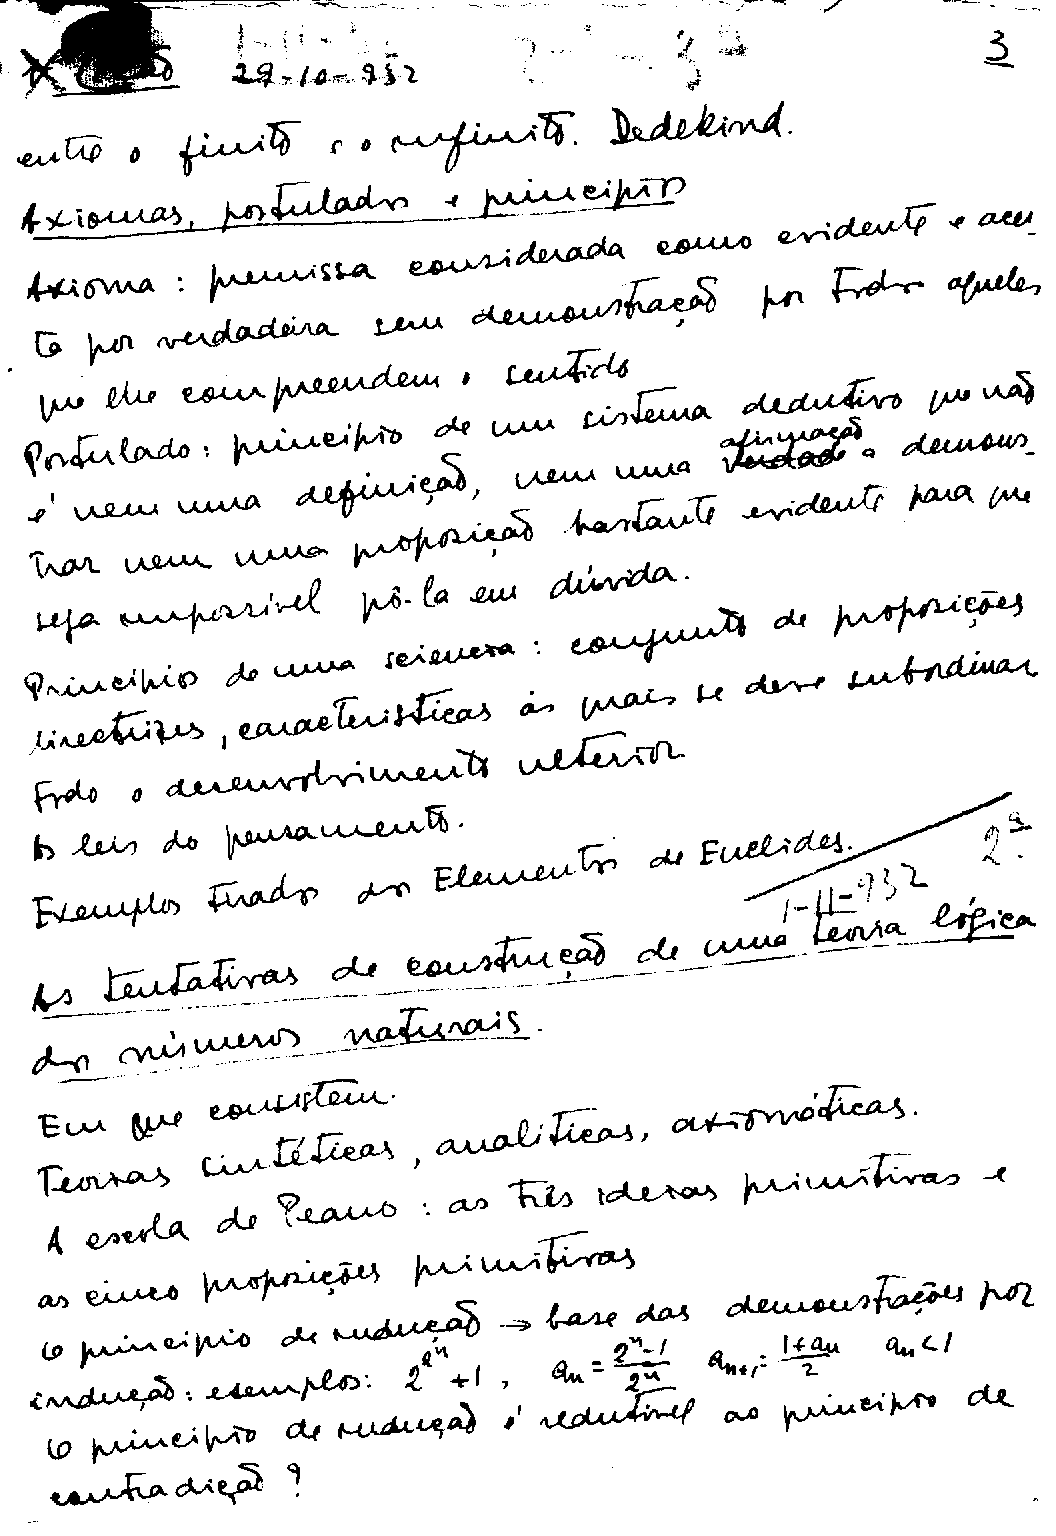 3
29-10-932
entre o finito e o infinito. Dedekind.
Axiomas, postulados e princípios
Axioma: premissa considerada como evidente e acei-
ta por verdadeira sem demonstração por todos aqueles
que lhe compreendem o sentido
Postulado: princípio de um sistema dedutivo que não
é nem uma definição, nem uma afirmação a demons-
trar nem uma proposição bastante evidente para que
seja impossível pô-la em dúvida.
Princípios de uma sciencia: conjunto de proposições
directrizes, características às quais se deve subordinar
todo o desenvolvimento ulterior
As leis do pensamento.
Exemplos tirados dos Elementos de Euclides.
1-11-932 2ª
As tentativas de construção de uma teoria lógica
dos números naturais.
Em que consistem.
Teorias sintéticas, analíticas, axiomáticas.
A escola de Peano: as três ideias primitivas e
as cinco proposições primitivas
O princípio de indução → base das demonstrações por
indução: exemplos: 2^{2^n}+1, a_n = \frac{2^n-1}{2^n} a_{n+1} = \frac{1+a_n}{2} a_n<1
O princípio de indução é redutível ao princípio de
contradição?